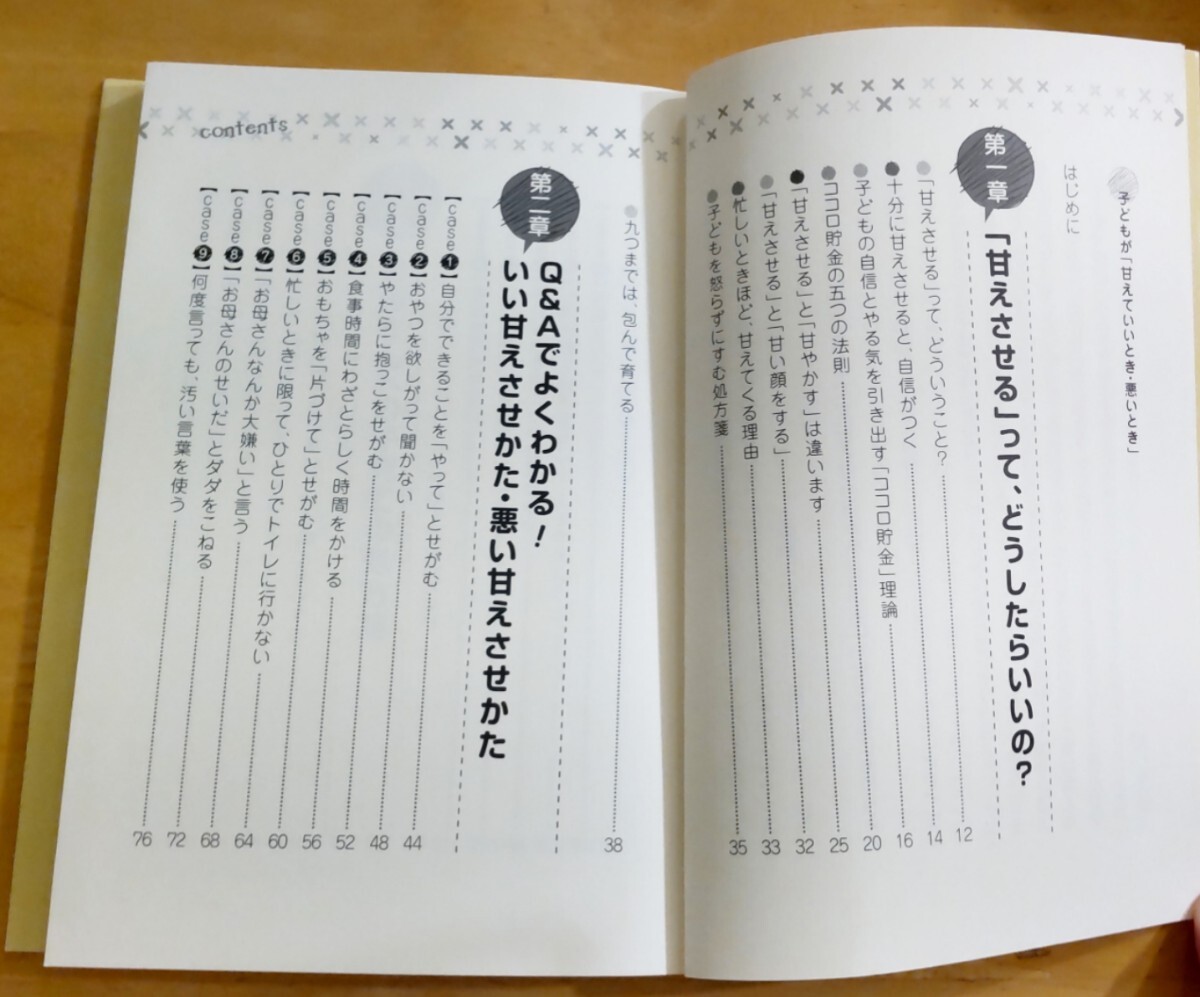 子どもが「甘えていいとき・悪いとき」
はじめに
第一章 「甘えさせる」って、どうしたらいいの？
●「甘えさせる」って、どういうこと？ 12
●十分に甘えさせると、自信がつく 14
●子どもの自信とやる気を引き出す「ココロ貯金」理論 16
●ココロ貯金の五つの法則 20
●「甘えさせる」と「甘やかす」は違います 25
●「甘えさせる」と「甘い顔をする」 32
●忙しいときほど、甘えてくる理由 33
●子どもを怒らずにすむ処方箋 35
contents
●九つまでは、包んで育てる 38
第二章 Q&Aでよくわかる！
いい甘えさせかた・悪い甘えさせかた
【case❶】自分でできることを「やって」とせがむ 44
【case❷】おやつを欲しがって聞かない 48
【case❸】やたらに抱っこをせがむ 52
【case❹】食事時間にわざとらしく時間をかける 56
【case❺】おもちゃを「片づけて」とせがむ 60
【case❻】忙しいときに限って、ひとりでトイレに行かない 64
【case❼】「お母さんなんか大嫌い」と言う 68
【case❽】「お母さんのせいだ」とダダをこねる 72
【case❾】何度言っても、汚い言葉を使う 76